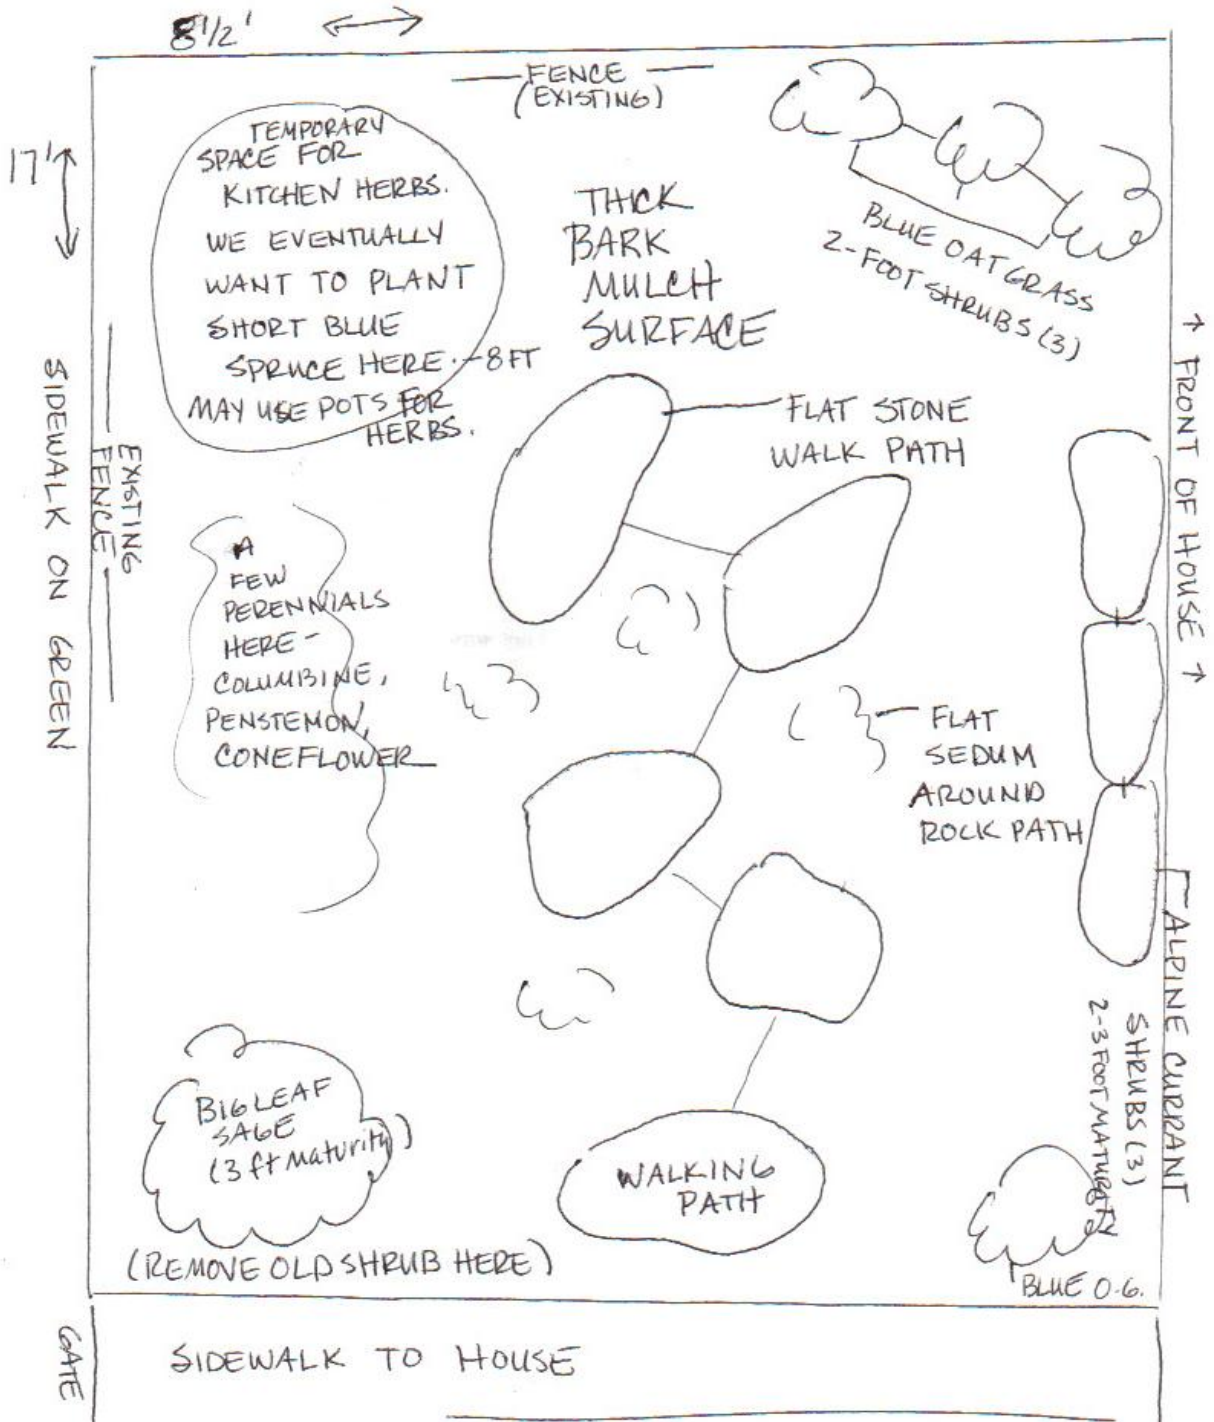 8 1/2'
FENCE
(EXISTING)
17'
TEMPORARY
SPACE FOR
KITCHEN HERBS.
WE EVENTUALLY
WANT TO PLANT
SHORT BLUE
SPRUCE HERE.-8FT
MAY USE POTS FOR
HERBS.
THICK
BARK
MULCH
SURFACE
BLUE OAT GRASS
2-FOOT SHRUBS (3)
FLAT STONE
WALK PATH
FRONT OF HOUSE
SIDEWALK ON GREEN
EXISTING
FENCE
A
FEW
PERENNIALS
HERE -
COLUMBINE,
PENSTEMON,
CONEFLOWER
FLAT
SEDUM
AROUND
ROCK PATH
ALPINE CURRANT
SHRUBS (3)
2-3 FOOT MATURITY
BIG LEAF
SAGE
(3 ft maturity)
(REMOVE OLD SHRUB HERE)
WALKING
PATH
BLUE O.G.
GATE
SIDEWALK TO HOUSE